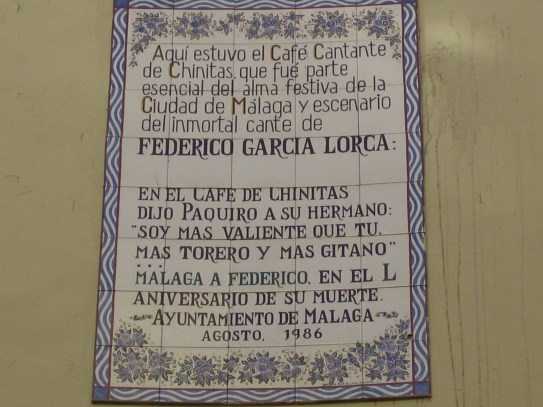 Aquí estuvo el Café Cantante
de Chinitas, que fué parte
esencial del alma festiva de la
Ciudad de Málaga y escenario
del inmortal cante de
FEDERICO GARCIA LORCA:
EN EL CAFE DE CHINITAS
DIJO PAQUIRO A SU HERMANO:
"SOY MAS VALIENTE QUE TU,
MAS TORERO Y MAS GITANO"
...
MALAGA A FEDERICO, EN EL L
ANIVERSARIO DE SU MUERTE.
AYUNTAMIENTO DE MALAGA
AGOSTO, 1986